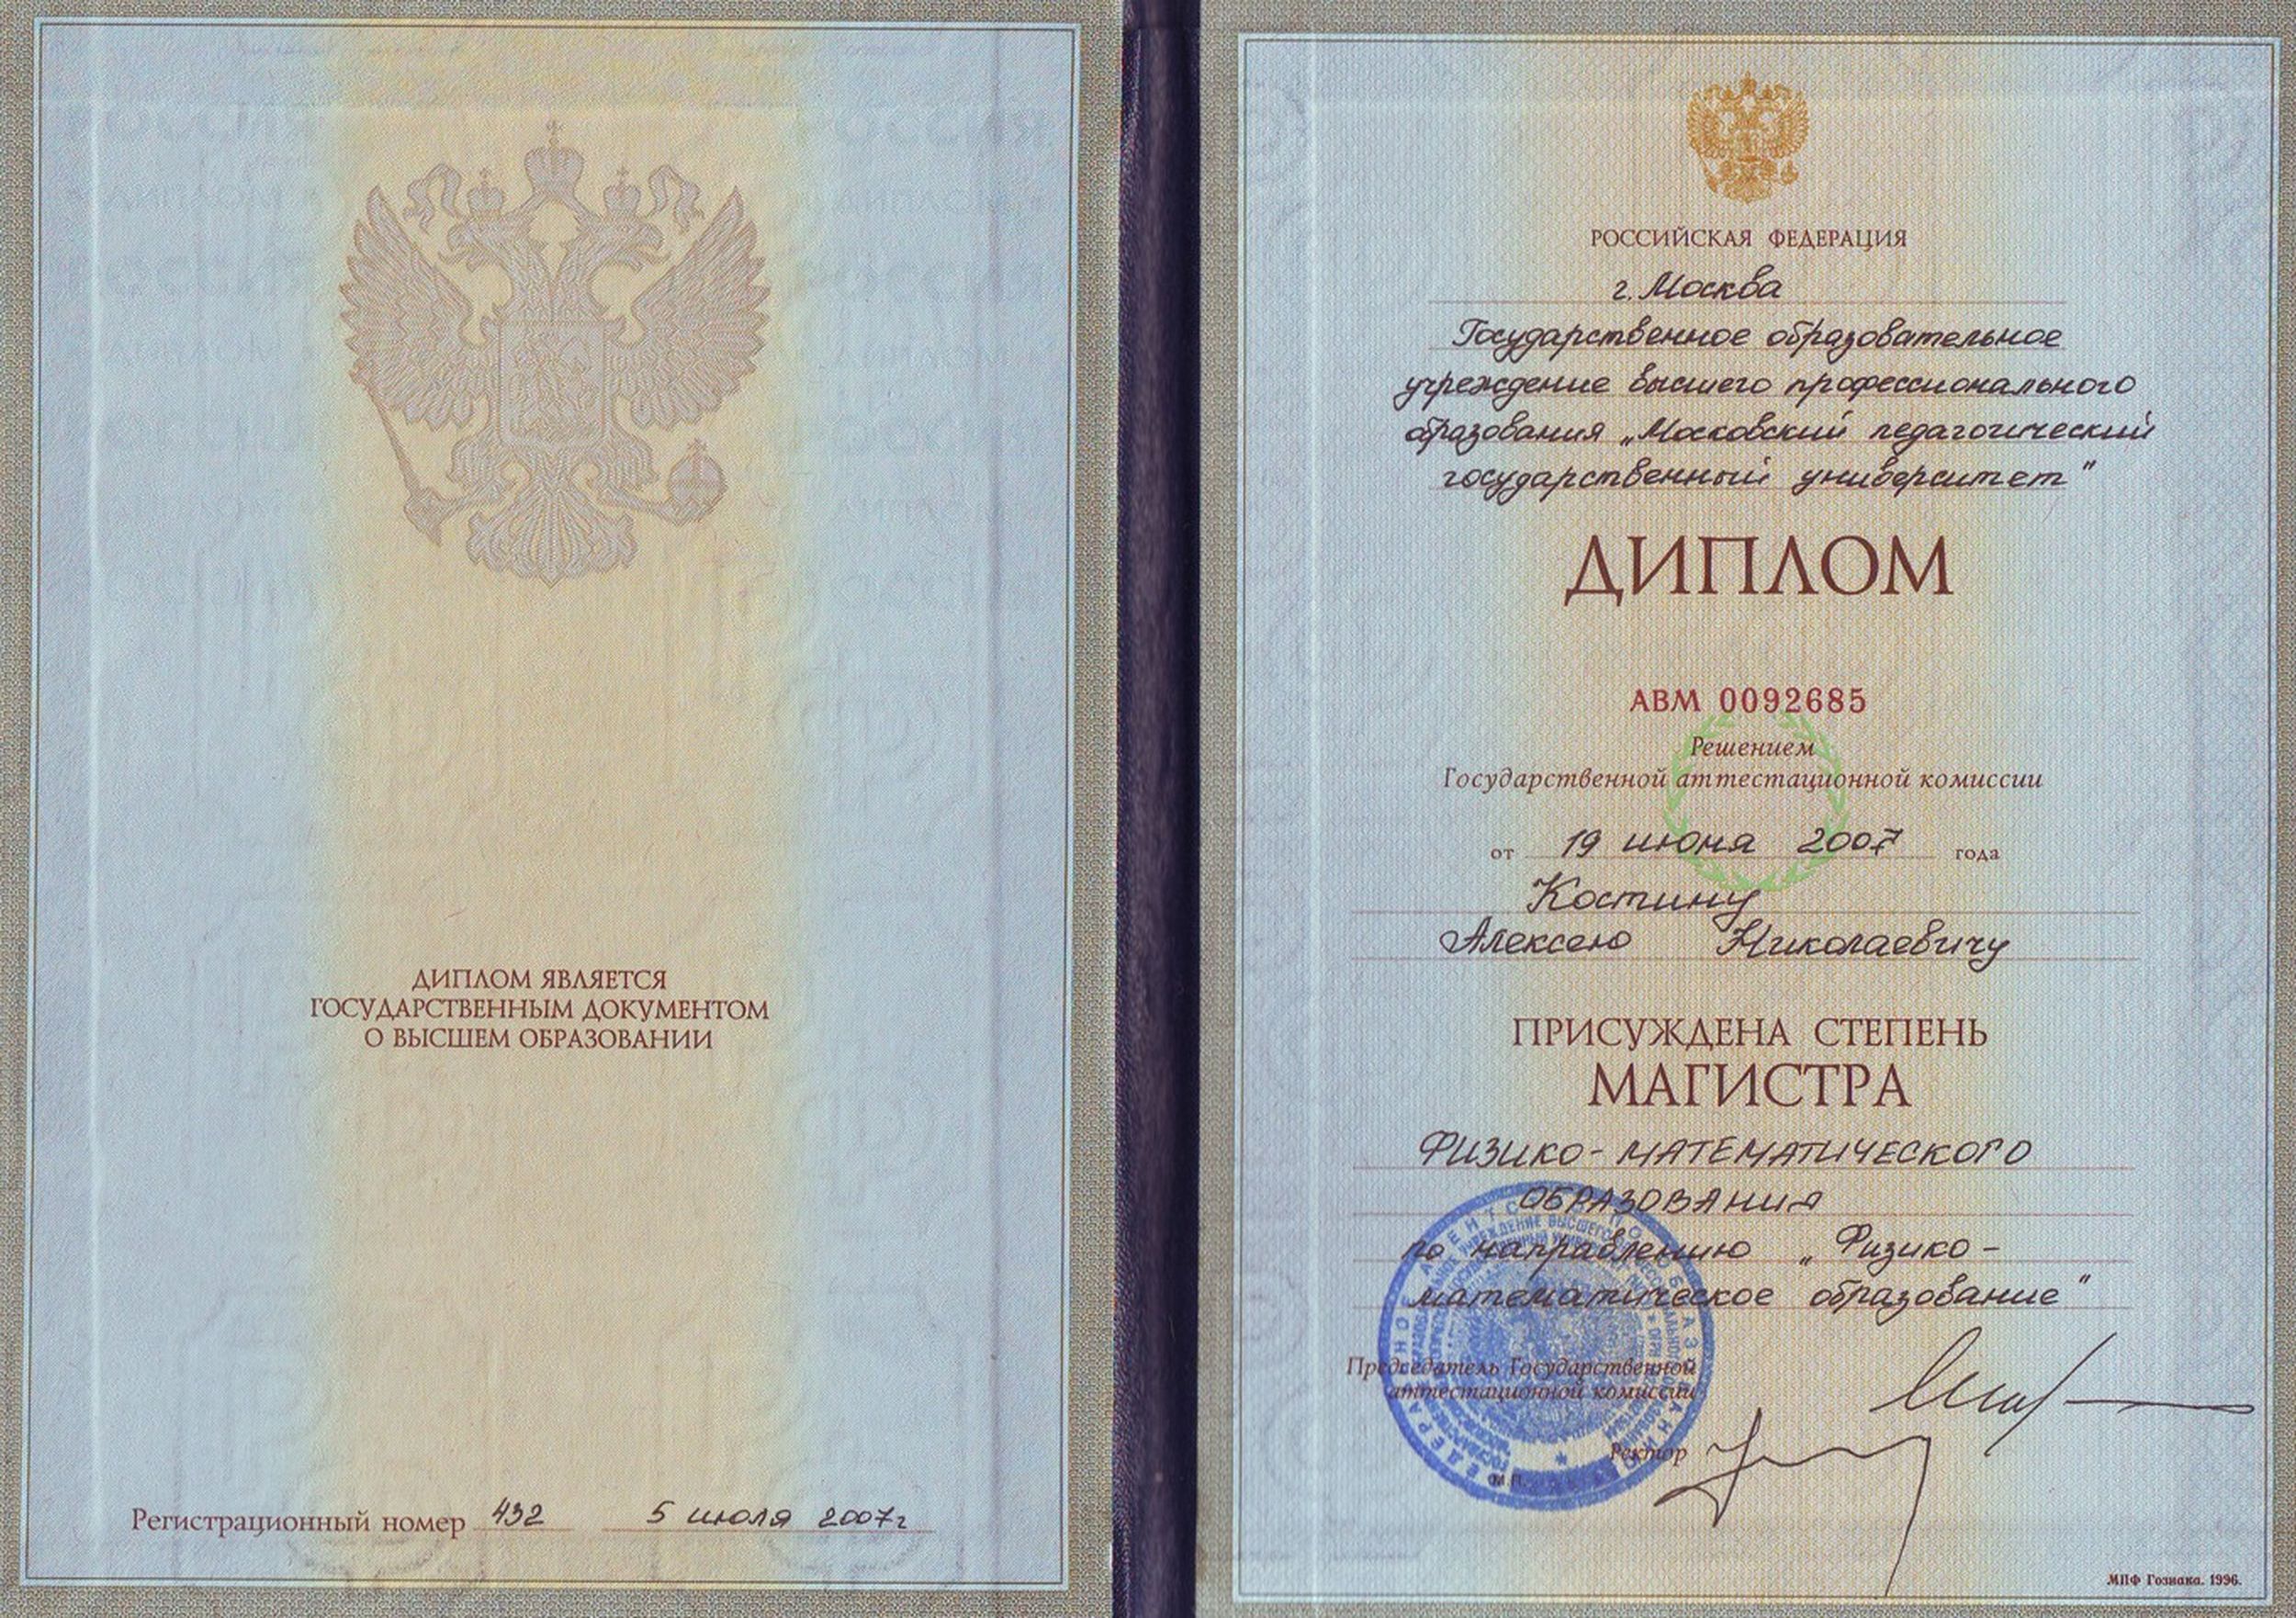 ДИПЛОМ ЯВЛЯЕТСЯ
ГОСУДАРСТВЕННЫМ ДОКУМЕНТОМ
О ВЫСШЕМ ОБРАЗОВАНИИ
Регистрационный номер 432 5 июля 2007г
РОССИЙСКАЯ ФЕДЕРАЦИЯ
г. Москва
Государственное образовательное
учреждение высшего профессионального
образования „Московский педагогический
государственный университет"
ДИПЛОМ
АВМ 0092685
Решением
Государственной аттестационной комиссии
от 19 июня 2007 года
Костину
Алексею Николаевичу
ПРИСУЖДЕНА СТЕПЕНЬ
МАГИСТРА
ФИЗИКО-МАТЕМАТИЧЕСКОГО
ОБРАЗОВАНИЯ
по направлению „Физико-
математическое образование"
Председатель Государственной
аттестационной комиссии
Ректор
М.П.
МПФ Гознака. 1996.